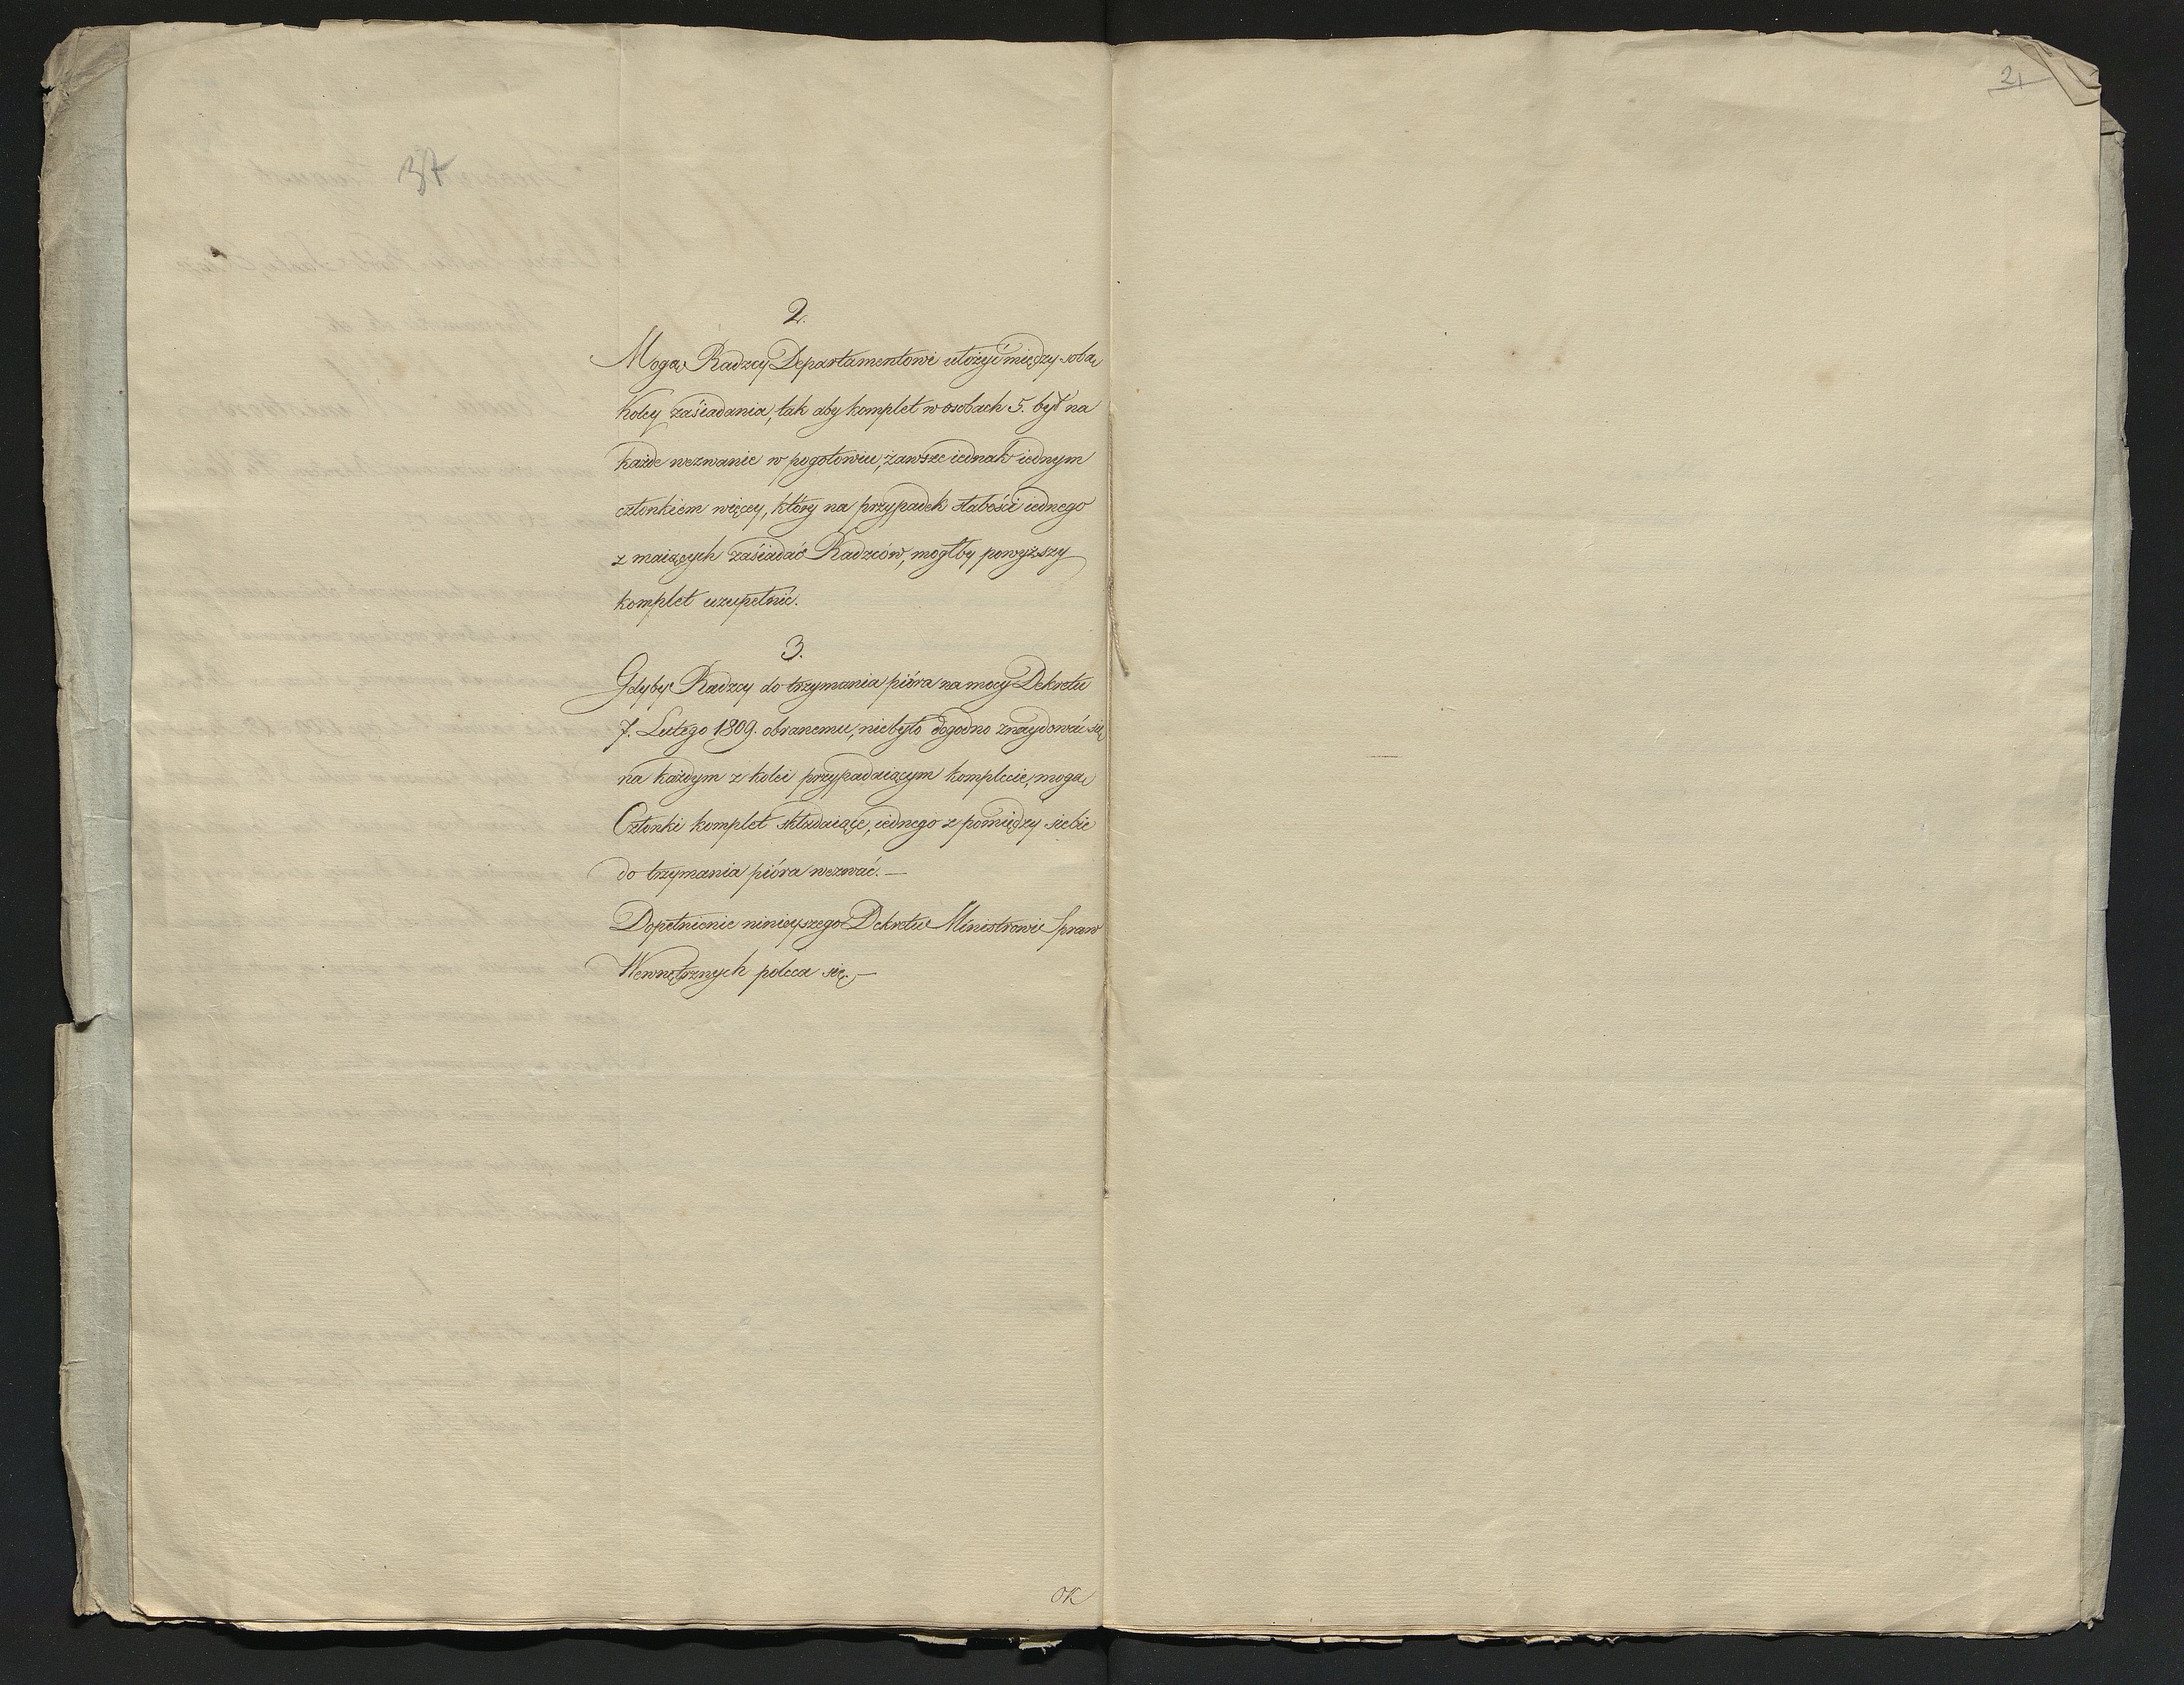 37
2.
Mogą Radzcy Departamentowi ułożyć między sobą
Koley zasiadania, tak aby komplet w osobach 5. był na
każde wezwanie w pogotowiu, zawsze iednak iednym
członkiem więcey, który na przypadek słabości iednego
z maiących zasiadać Radzców, mogłby powyższy
komplet uzupełnić.
3.
Gdyby Radzcy do trzymania pióra na mocy Dekretu
7. Lutego 1809. obranemu, niebyło dogodno znaydować się
na każdym z kolei przypadaiącym komplecie, mogą
Członki komplet składaiące, iednego z pomiędzy siebie
do trzymania pióra wezwać.—
Dopełnienie ninieyszego Dekretu Ministrowi Spraw
Wewnętrznych poleca się.—
OK
21